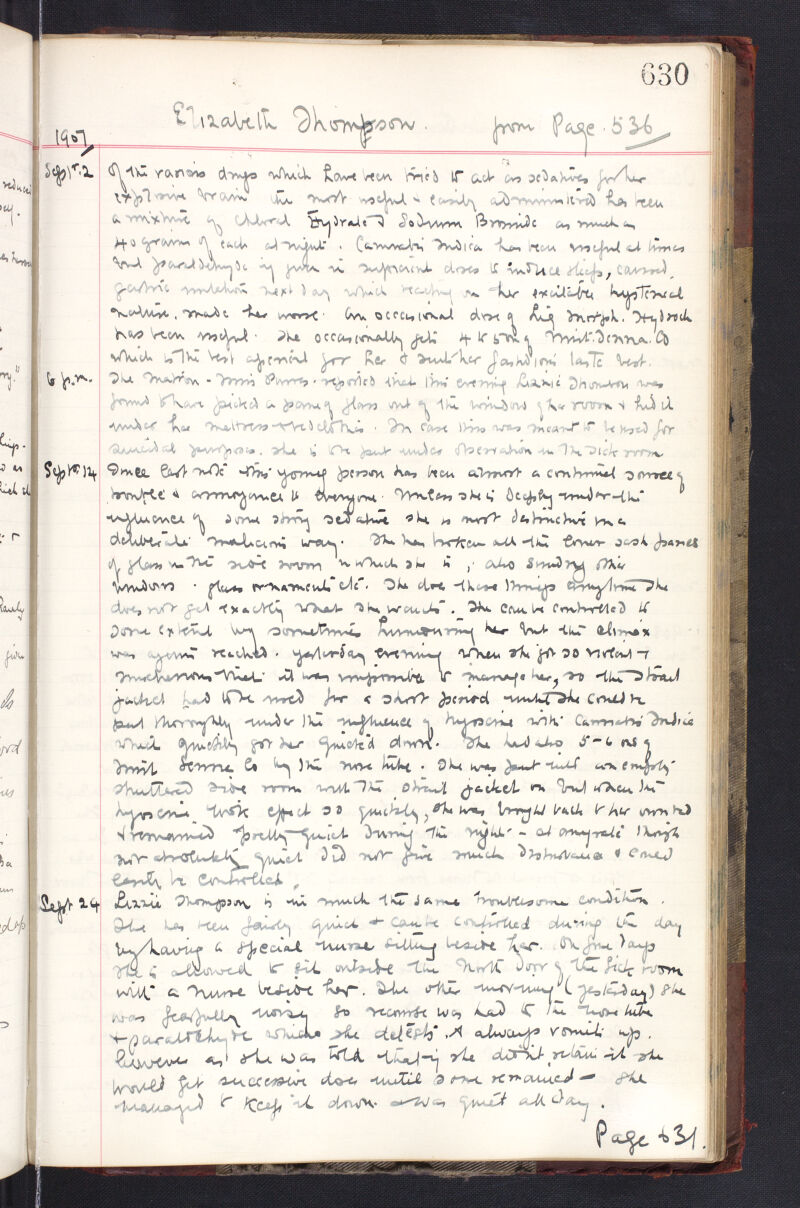 630
Elizabeth Thompson. from Page. 536
1907
Sept. 2 Of the various drugs which have been tried to act as sedatives for her
explosive brain the most useful & easily administered has been
a mixture of Chloral Hydrate & Sodium Bromide as much as
40 grains of each at night. Cannabis Indica has been useful at times
but paraldehyde if given in sufficient doses to induce sleep, caused
gastric irritation next day which reacting on her excitable hysterical
nature, made her worse. An occasional dose of Liq Morph. Hydroch
has been useful. She occasionally gets 4 to 5 oz of Mist. Senna. Co
which is the best aperient for her & suits her fastidious taste best.
6 p.m. The Matron - Miss reported that this evening Lizzie Thompson was
found to have picked a pane of glass out of the window of her room & hid it
under her mattress & bedclothes. In case this was meant to be used for
suicidal purposes. she is to be put under observation in the sick room
Sept. 14 Since last note this young person has been almost a continual source of
trouble & annoyance to everyone. Unless she is deeply under the
influence of some strong sedative she is most destructive in a
deliberate malicious way. She has broken all the lower sash panes
of glass in the side room in which she is, also sundry other
windows. glass ornaments etc. She does these things anytime she
does not get exactly what she wants. She can be controlled to
some extent by sometimes humouring her but the climax
was again reached. yesterday evening when she got so violent &
that it was impossible to manage her, so the strait
jacket had to be used for a short period until she could be
put thoroughly under the influence of hyoscine with Cannabis Indica
which quickly got her quieted down. She had also 5-6 ozs of
Mist Senna Co by the nose tube. She was put into an empty
shuttered side room with the strait jacket on but when the
hyoscine took effect so quickly, she was brought back to her own bed
& remained pretty quiet during the night - at anyrate though
not absolutely quiet did not give much disturbance & could
easily be controlled.
Sept 24 Lizzie Thompson is in much the same troublesome condition.
She has been fairly quiet & can be controlled during the day
by having a special nurse sitting beside her. On fine days
she is allowed to sit outside the North Door of the Sick room
with a nurse beside her. The other morning (yesterday) she
was fearfully noisy so recourse was had to the nose tube
& paraldehyde which she detests & always vomits up.
however as she was told that if she didn't retain it she
would get successive doses until some remained - she
managed to keep it down & was quiet all day.
Page 631.